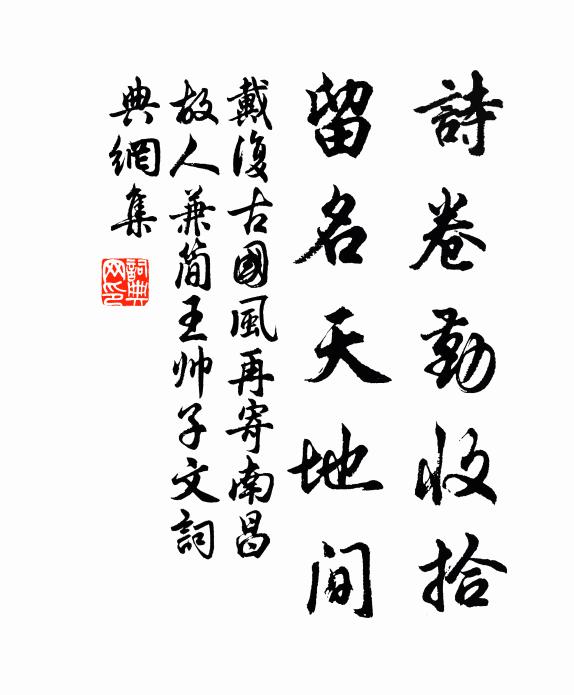 詩卷勤收拾
留名天地间
戴復古國風再寄南昌
故人兼简王帅子文詞
典網集
詞典网印